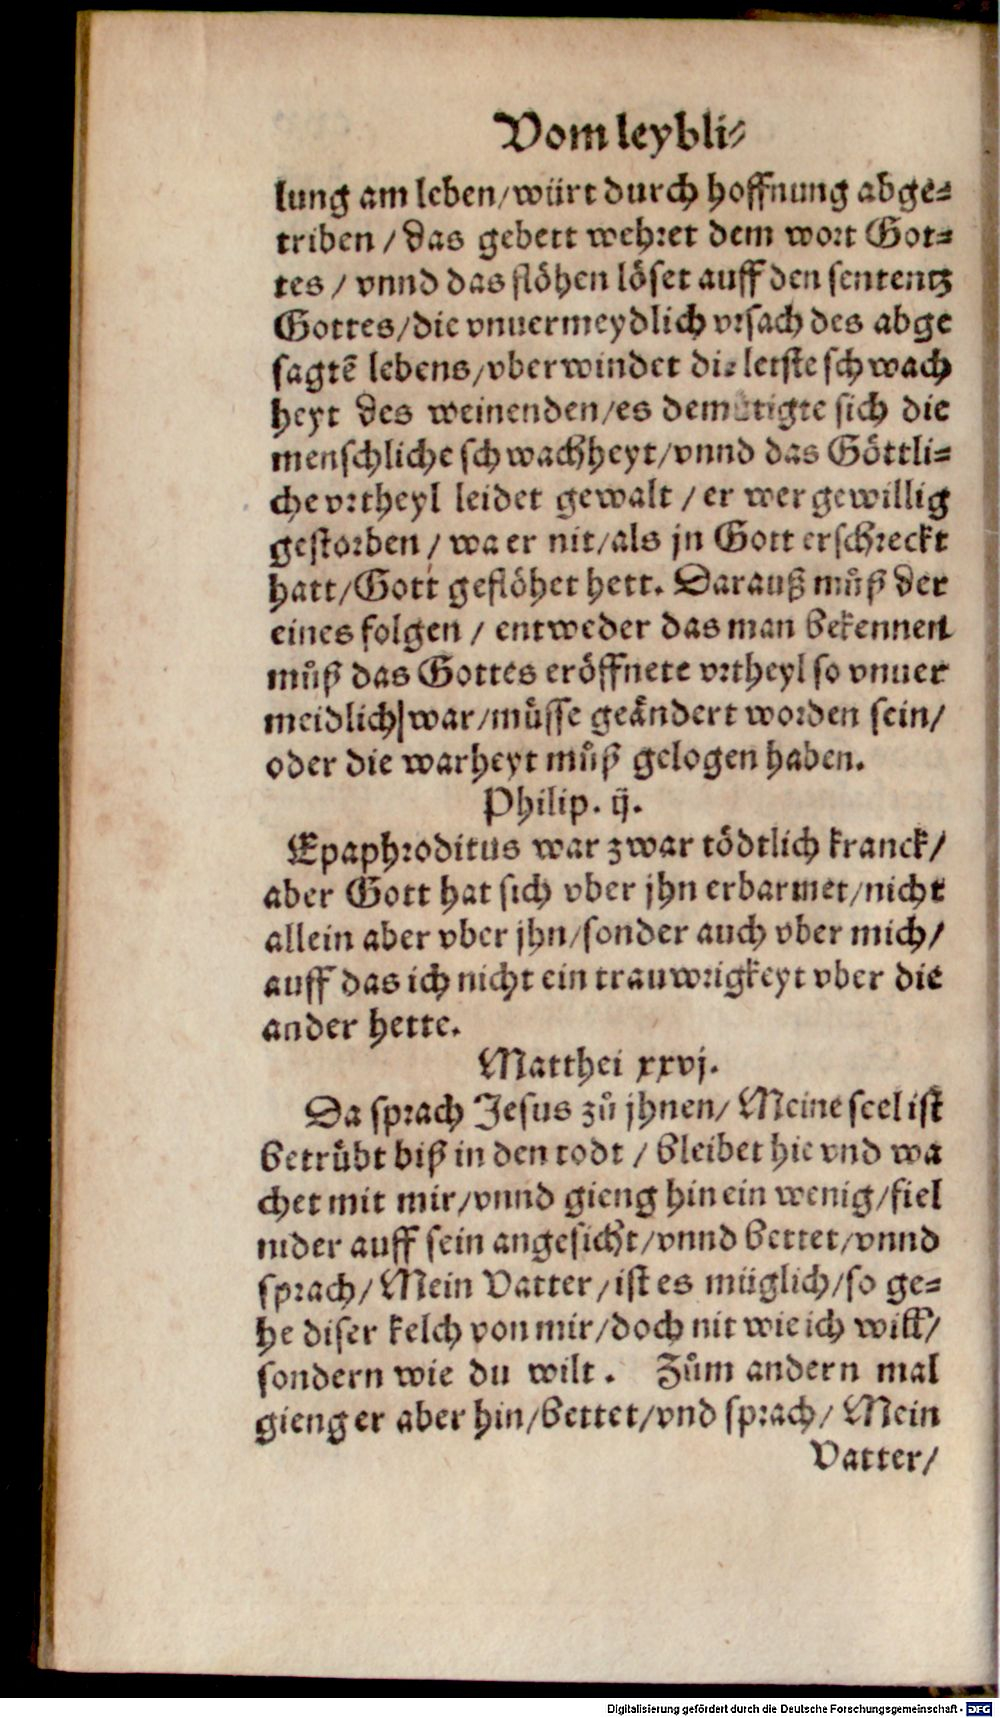 Vom leybli⸗
lung am leben/ würt durch hoffnung abge⸗
triben / das gebett wehret dem wort Got⸗
tes / vnnd das flöhen löset auff den sententz
Gottes/ die vnuermeydlich vrsach des abge
sagtē lebens/ vberwindet die letste schwach
heyt des weinenden/ es demütigte sich die
menschliche schwachheyt/ vnnd das Göttli⸗
che vrtheyl leidet gewalt / er wer gewillig
gestorben / wa er nit/ als jn Gott erschreckt
hatt/ Gott geflöhet hett. Darauß můß der
eines folgen / entweder das man bekennen
můß das Gottes eröffnete vrtheyl so vnuer
meidlich war/ müsse geändert worden sein/
oder die warheyt můß gelogen haben.
Philip. ij.
Epaphroditus war zwar tödtlich kranck/
aber Gott hat sich vber jhn erbarmet/ nicht
allein aber vber jhn/ sonder auch vber mich/
auff das ich nicht ein trauwrigkeyt vber die
ander hette.
Matthei xxvj.
Da sprach Jesus zů jhnen/ Meine seel ist
betrübt biß in den todt / bleibet hie vnd wa
chet mit mir/ vnnd gieng hin ein wenig/ fiel
nider auff sein angesicht/ vnnd bettet/ vnnd
sprach/ Mein Vatter/ ist es müglich/ so ge⸗
he diser kelch von mir/ doch nit wie ich will/
sondern wie du wilt. Zům andern mal
gieng er aber hin/ bettet/ vnd sprach/ Mein
Vatter/
Digitalisierung gefördert durch die Deutsche Forschungsgemeinschaft - DFG